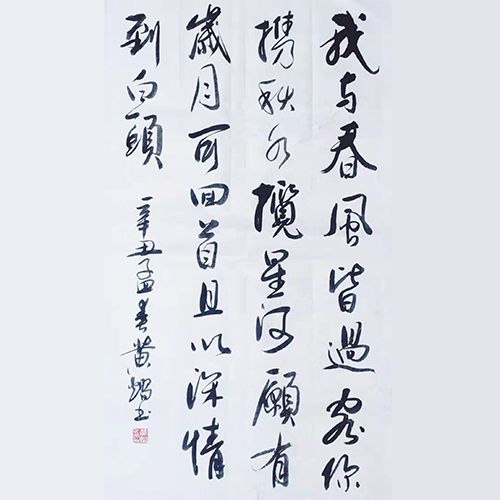 我与春風皆過客你
携秋水攬星河願有
歲月可回首且以深情
到白頭
辛丑孟春黄书